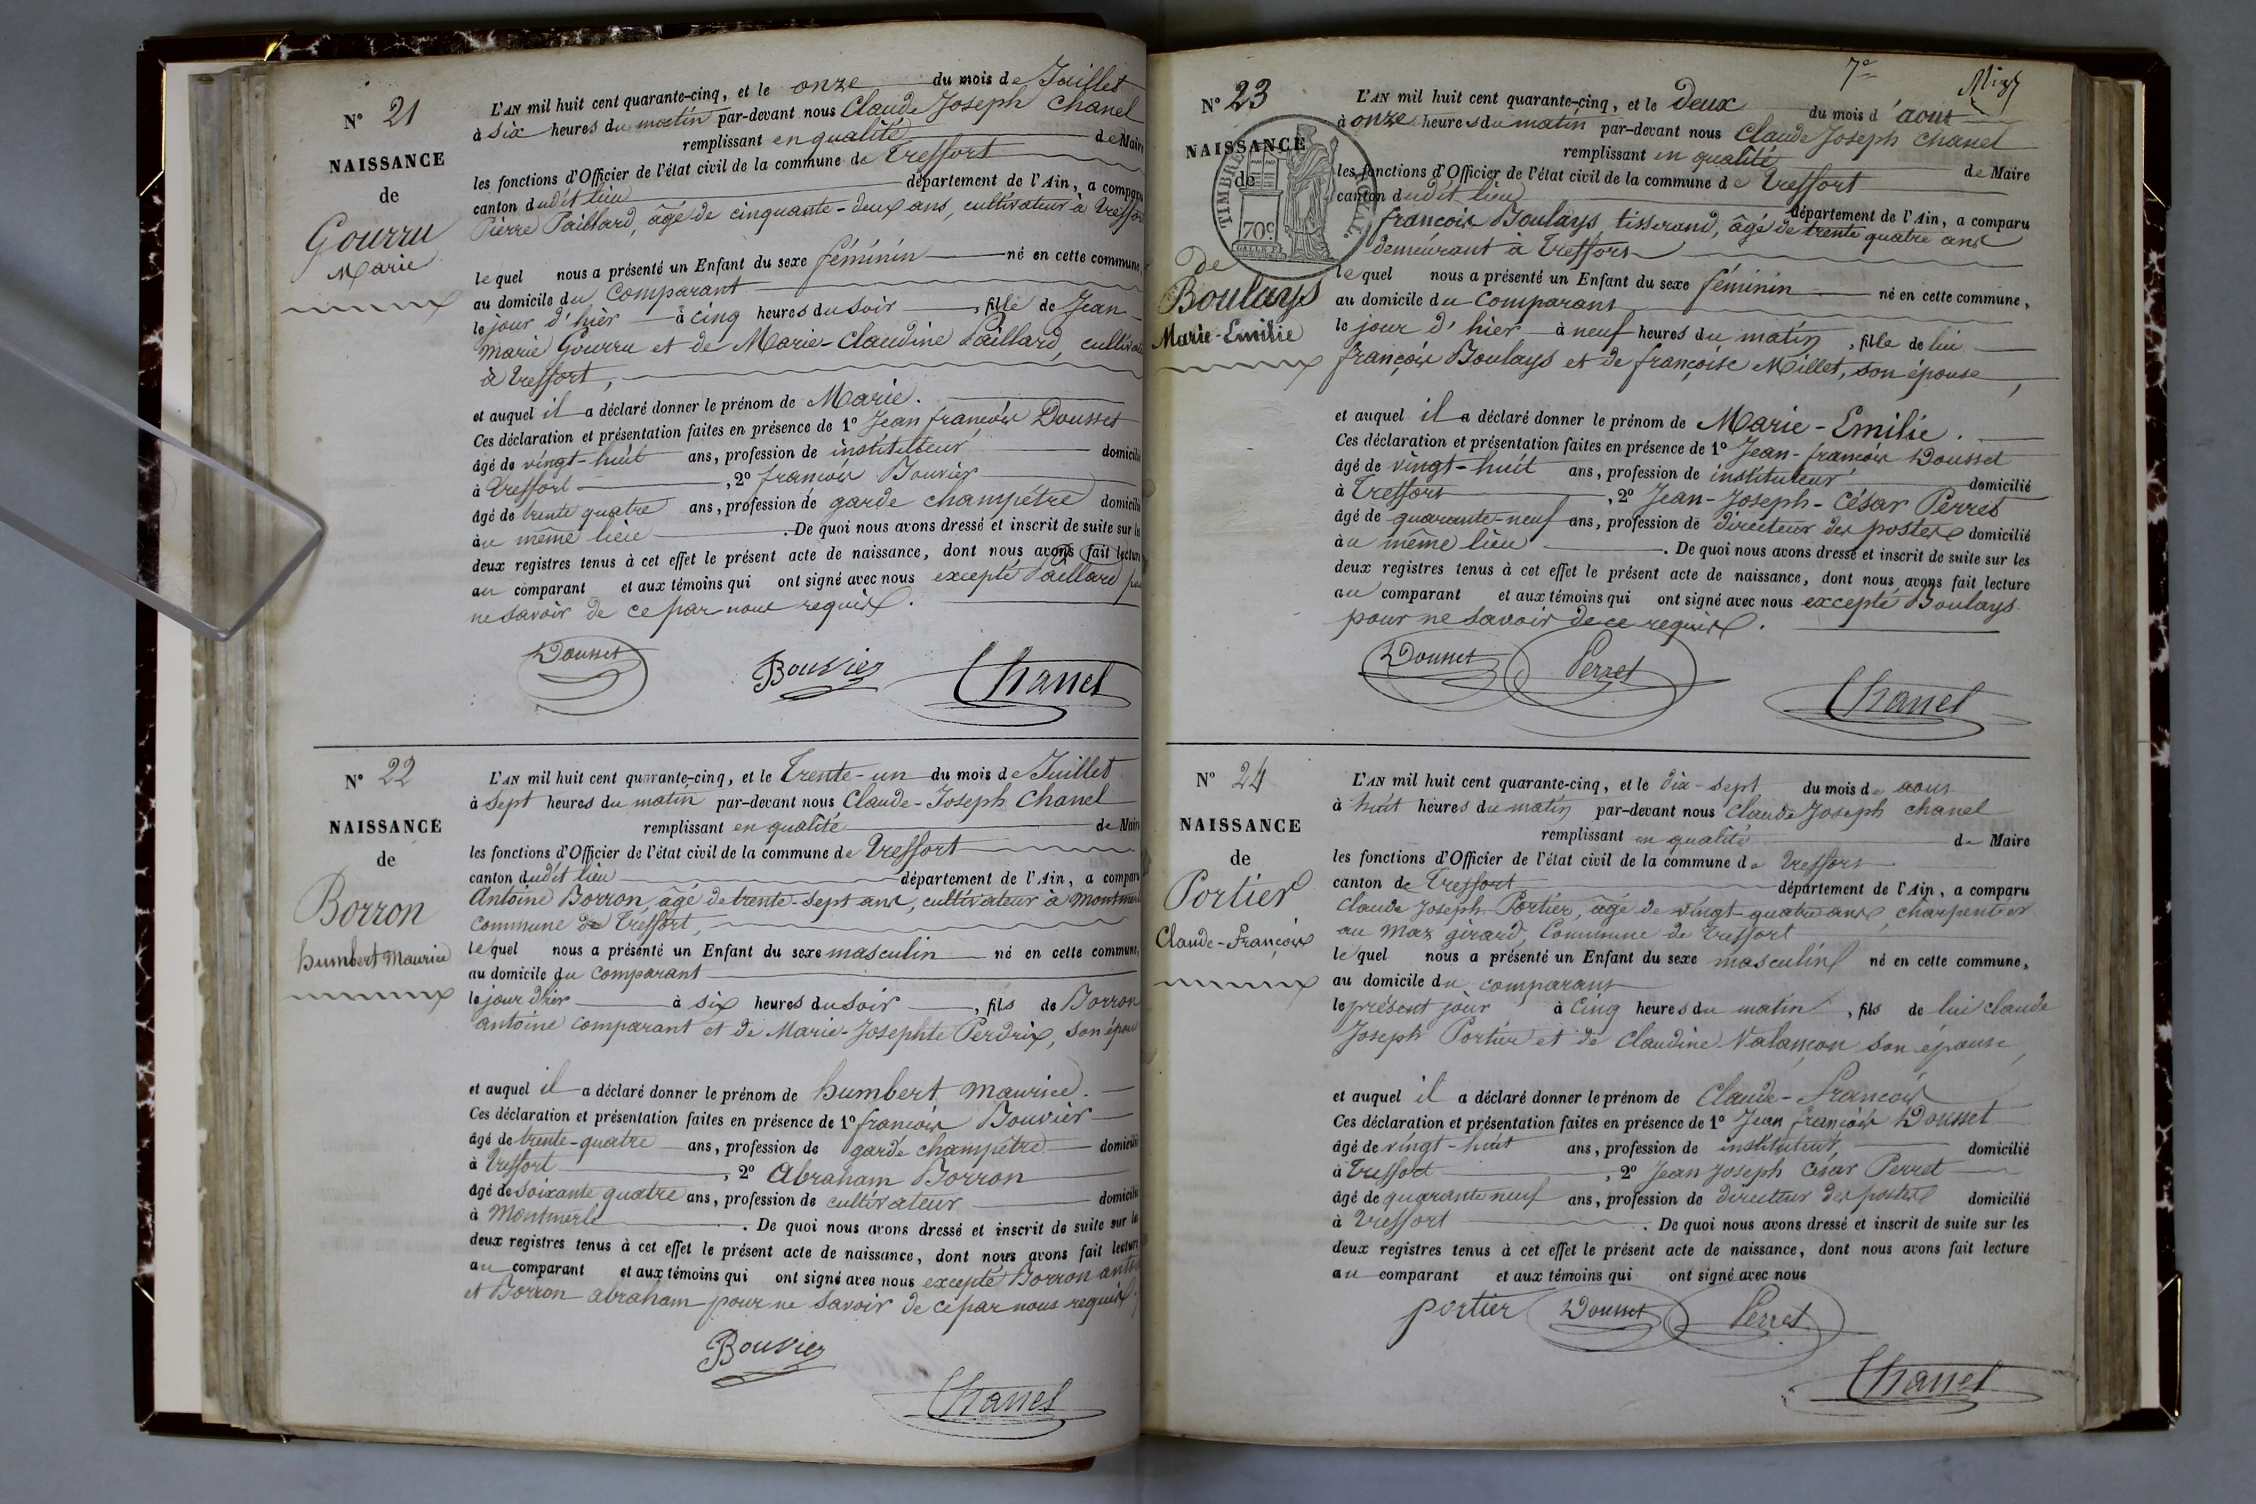 N° 21
NAISSANCE
de
Gourru
Marie
L'AN mil huit cent quarante-cinq, et le onze du mois de Juillet
à six heures du matin par-devant nous Claude Joseph Chanel
remplissant en qualité de Maire
les fonctions d'Officier de l'état civil de la commune de Treffort
canton dudit lieu département de l'Ain, a comparu
Pierre Paillard, âgé de cinquante-deux ans, cultivateur à Treffort
lequel nous a présenté un Enfant du sexe féminin né en cette commune,
au domicile du comparant
le jour d'hier à cinq heures du soir, fille de Jean
Marie Gourru et de Marie-Claudine Paillard,
à Treffort,
et auquel il a déclaré donner le prénom de Marie.
Ces déclaration et présentation faites en présence de 1° Jean françois Dousset
âgé de vingt-huit ans, profession de instituteur domicilié
à Treffort, 2° françois Bouvier
âgé de trente quatre ans, profession de garde champêtre domicilié
au même lieu. De quoi nous avons dressé et inscrit de suite sur les
deux registres tenus à cet effet le présent acte de naissance, dont nous avons fait lecture
au comparant et aux témoins qui ont signé avec nous excepté Paillard
ne savoir de ce par nous requis.
Dousset Bouvier Chanel
N° 22
NAISSANCE
de
Borron
humbert Maurice
L'AN mil huit cent quarante-cinq, et le Trente-un du mois de Juillet
à sept heures du matin par-devant nous Claude-Joseph Chanel
remplissant en qualité de Maire
les fonctions d'Officier de l'état civil de la commune de Treffort
canton dudit lieu département de l'Ain, a comparu
Antoine Borron, âgé de trente-sept ans, cultivateur à Montmerle
commune de Treffort,
lequel nous a présenté un Enfant du sexe masculin né en cette commune,
au domicile du comparant
le jour d'hier à six heures du soir, fils de Borron
antoine comparant et de Marie-Josephte Perdrix, son épouse
et auquel il a déclaré donner le prénom de humbert maurice.
Ces déclaration et présentation faites en présence de 1° françois Bouvier
âgé de trente-quatre ans, profession de garde champêtre domicilié
à Treffort, 2° Abraham Borron
âgé de soixante quatre ans, profession de cultivateur domicilié
à Montmerle. De quoi nous avons dressé et inscrit de suite sur les
deux registres tenus à cet effet le présent acte de naissance, dont nous avons fait lecture
au comparant et aux témoins qui ont signé avec nous excepté Borron antoine
et Borron abraham pour ne savoir de ce par nous requis.
Bouvier
Chanel
7e
N° 23
NAISSANCE
de
TIMBRE ROYAL
70c
de
Boulays
Marie-Emilie
L'AN mil huit cent quarante-cinq, et le deux du mois d'aout
à onze heures du matin par-devant nous Claude Joseph Chanel
remplissant en qualité de Maire
les fonctions d'Officier de l'état civil de la commune de Treffort
canton dudit lieu département de l'Ain, a comparu
françois Boulays, tisserand, âgé de trente quatre ans
demeurant à Treffort
lequel nous a présenté un Enfant du sexe féminin né en cette commune,
au domicile du comparant
le jour d'hier à neuf heures du matin, fille de lui
françois Boulays et de françoise Millet, son épouse,
et auquel il a déclaré donner le prénom de Marie-Emilie.
Ces déclaration et présentation faites en présence de 1° Jean-françois Dousset
âgé de vingt-huit ans, profession de instituteur domicilié
à Treffort, 2° Jean-Joseph-César Perret
âgé de quarante-neuf ans, profession de directeur des postes domicilié
au même lieu. De quoi nous avons dressé et inscrit de suite sur les
deux registres tenus à cet effet le présent acte de naissance, dont nous avons fait lecture
au comparant et aux témoins qui ont signé avec nous excepté Boulays
pour ne savoir de ce requis.
Dousset Perret
Chanel
N° 24
NAISSANCE
de
Portier
Claude-François
L'AN mil huit cent quarante-cinq, et le dix-sept du mois de aout
à huit heures du matin par-devant nous Claude Joseph Chanel
remplissant en qualité de Maire
les fonctions d'Officier de l'état civil de la commune de Treffort
canton de Treffort département de l'Ain, a comparu
Claude Joseph Portier, âgé de vingt-quatre ans, charpentier
au Maz girard, Commune de Treffort
lequel nous a présenté un Enfant du sexe masculin né en cette commune,
au domicile du comparant
le présent jour à cinq heures du matin, fils de lui claude
Joseph Portier et de Claudine Valançon son épouse,
et auquel il a déclaré donner le prénom de Claude-François
Ces déclaration et présentation faites en présence de 1° Jean françois Dousset
âgé de vingt-huit ans, profession de instituteur, domicilié
à Treffort, 2° Jean Joseph César Perret
âgé de quarante neuf ans, profession de directeur des postes domicilié
à Treffort. De quoi nous avons dressé et inscrit de suite sur les
deux registres tenus à cet effet le présent acte de naissance, dont nous avons fait lecture
au comparant et aux témoins qui ont signé avec nous
portier Dousset Perret
Chanel